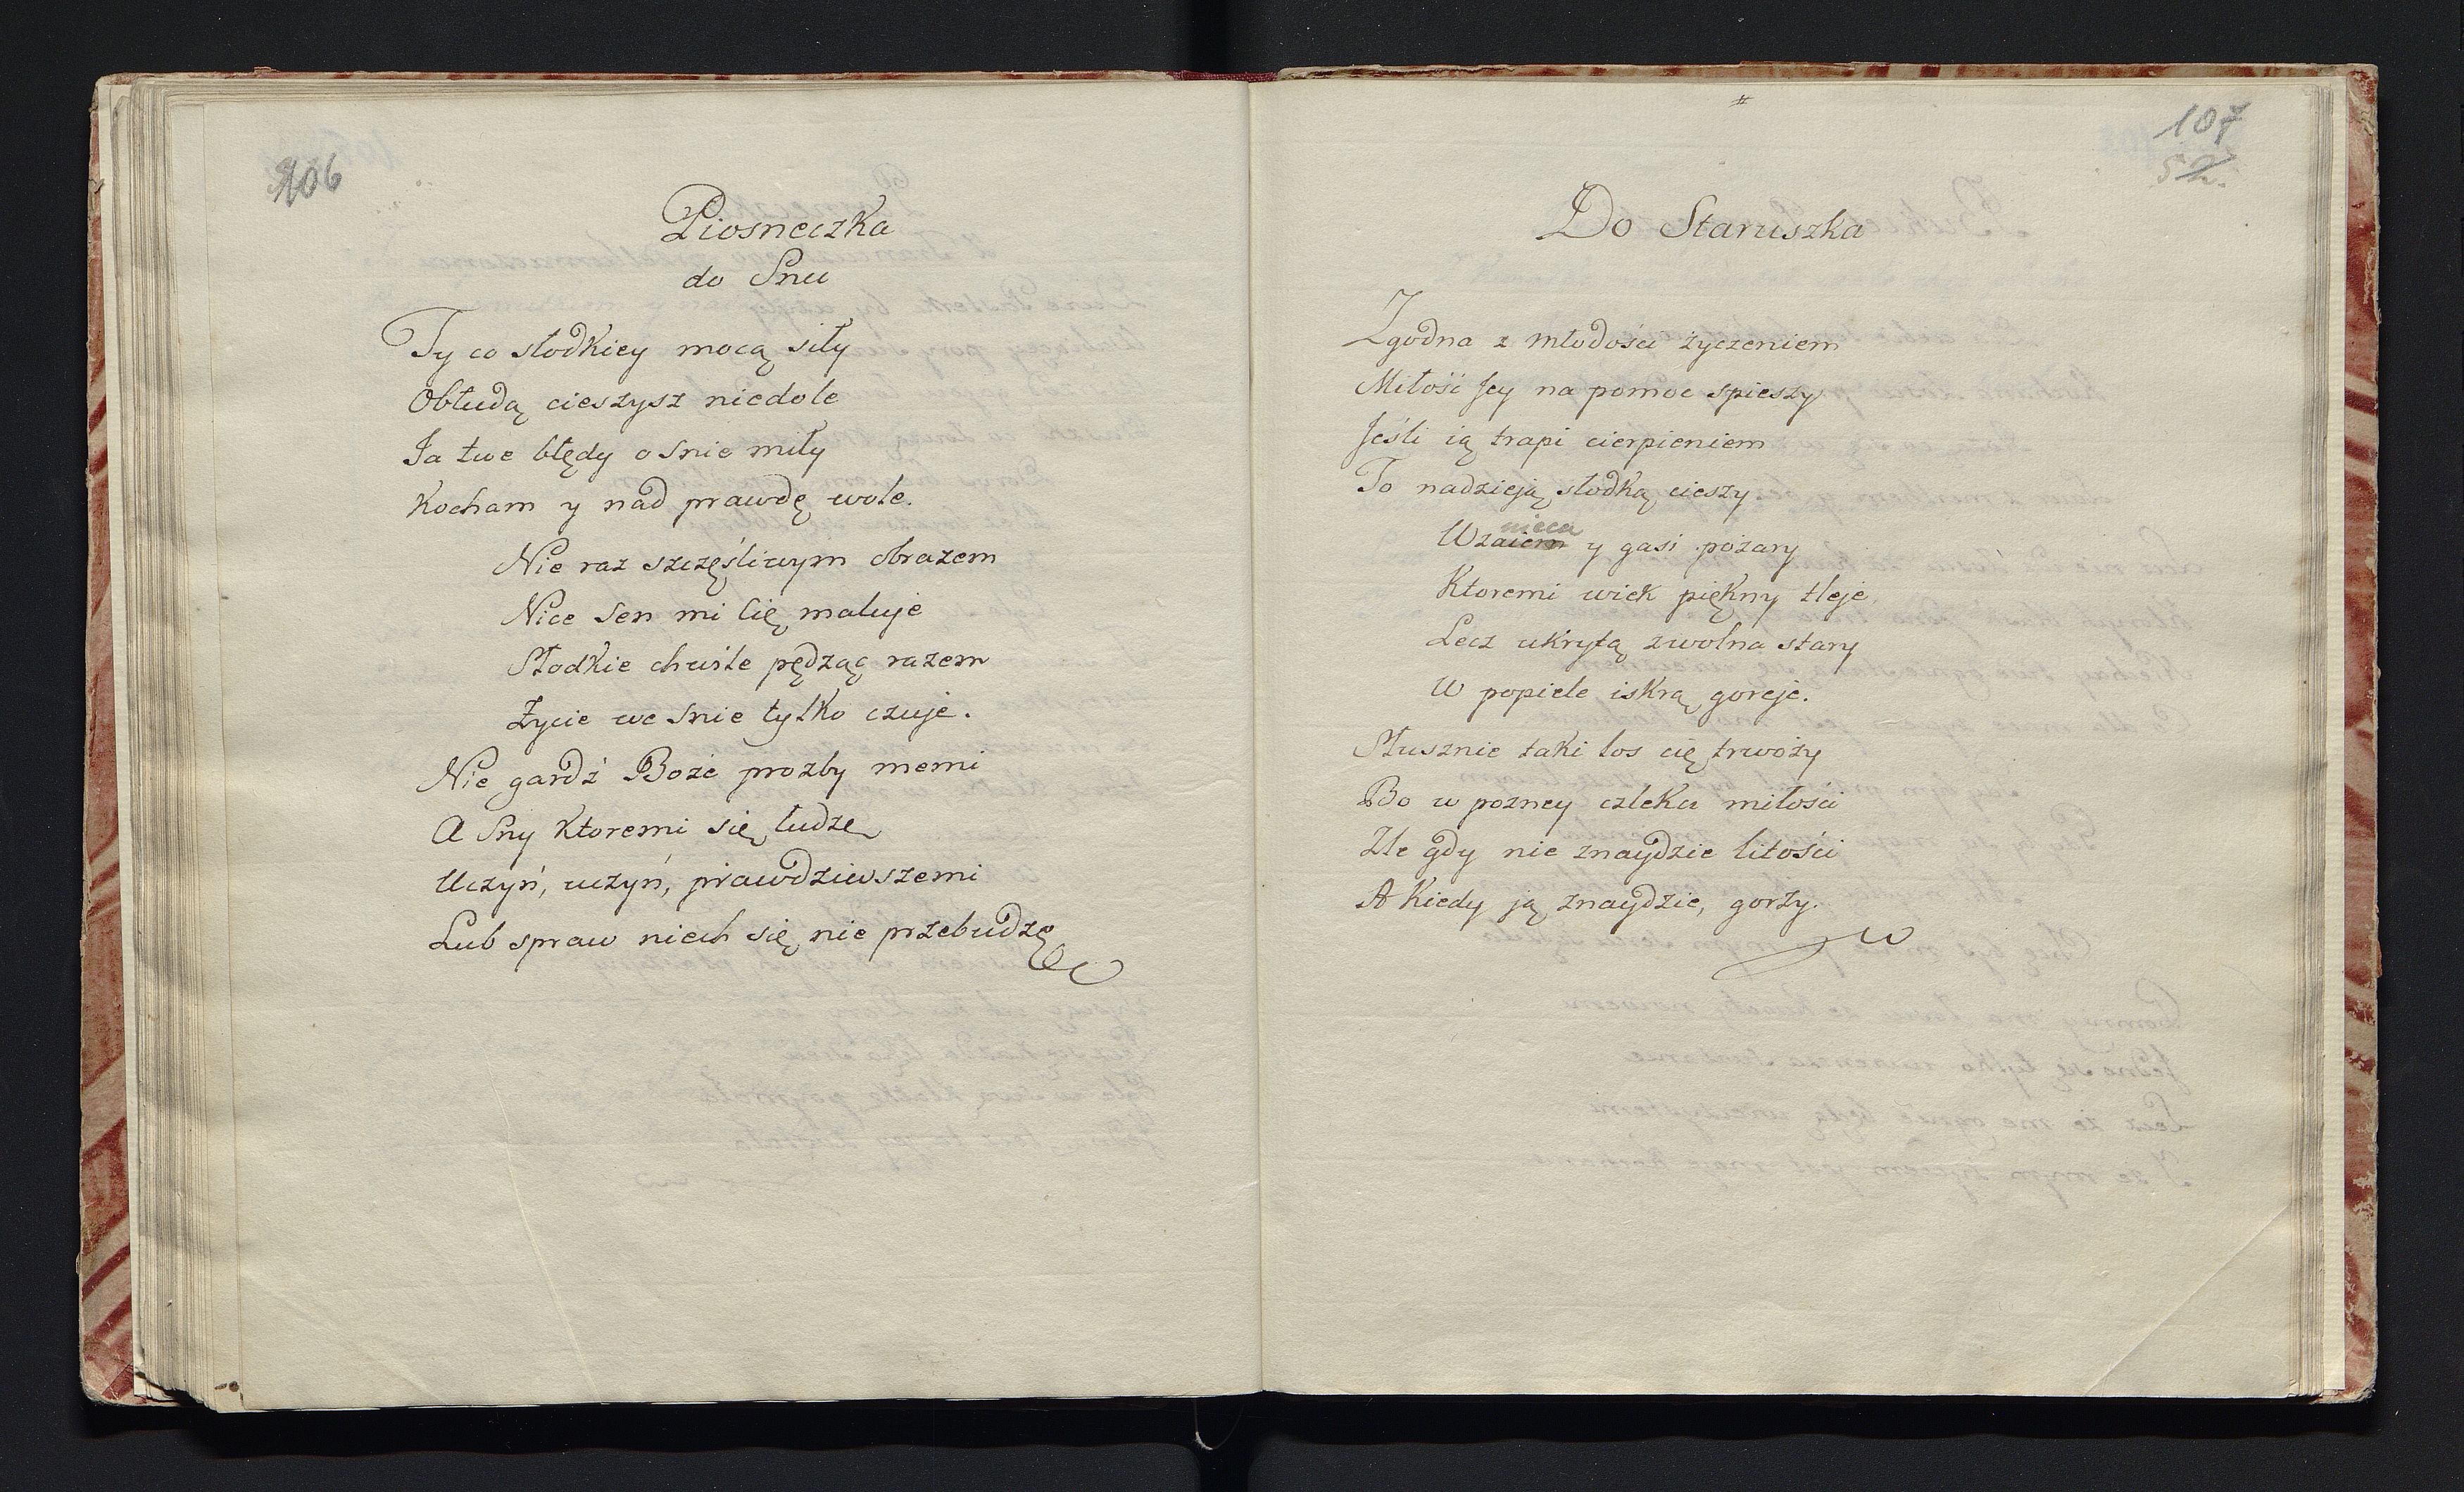 106
Piosneczka
do Snu
Ty co słodkiey mocą siły
Obłudą cieszysz niedole
Ja twe błędy o Snie miły
Kocham y nad prawdę wole.
Nie raz szczęśliwym obrazem
Nice Sen mi Cię maluje
Słodkie chwile pędząc razem
Życie we Snie tylko czuje.
Nie gardź Boże prozby memi
A Sny Ktoremi się łudzę
Uczyń, uczyń, prawdziwszemi
Lub spraw niech się nie przebudzę
#
107
52.
Do Staruszka
Zgodna z młodości życzeniem
Miłość Jey na pomoc spieszy
Jeśli ią trapi cierpieniem
To nadzieją słodką cieszy
nieca
Wzaiem y gasi pożary
Ktoremi wiek piękny tleje
Lecz ukrytą zwolna stary
W popiele iskrą goreje.
Słusznie taki los cię trwoży
Bo w pozney człeku miłości
Źle gdy nie znaydzie litości
A Kiedy ją znaydzie, gorży.